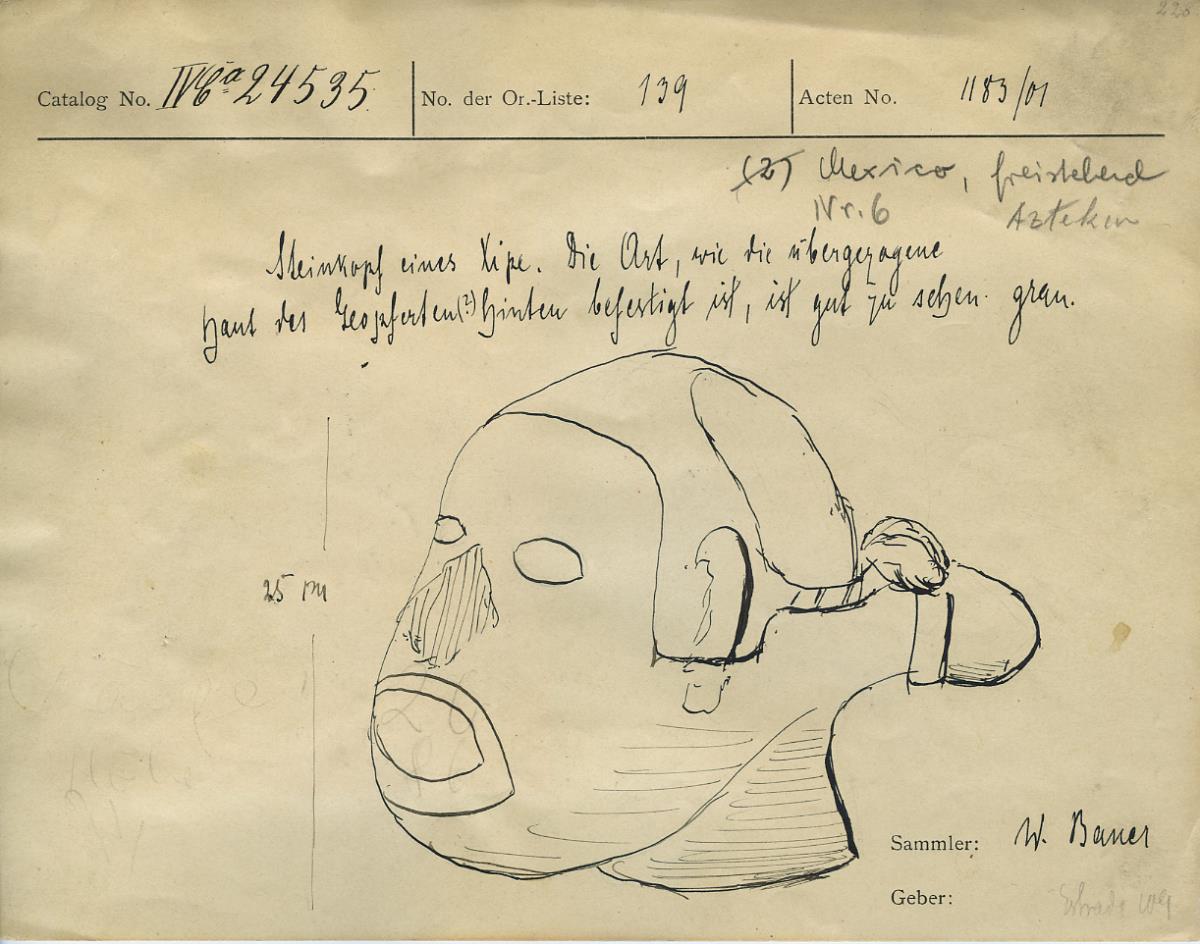 Catalog No. IV Ca 24535
No. der Or.-Liste: 139
Acten No. 1183/01
(2) Mexico, freistehend
Nr. 6 Azteken
Steinkopf eines Xipe. Die Art, wie die übergezogene
Haut des Geopferten(?) hinten befestigt ist, ist gut zu sehen. grau.
25 cm
Sammler: W. Bauer
Geber: